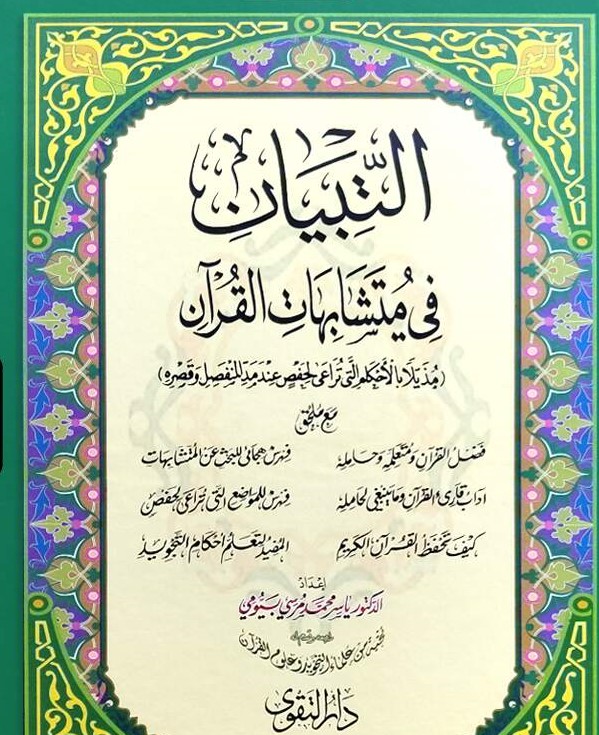 التِّبْيَانِ
فِي مُتَشَابِهَاتِ القُرْآنِ
(مُذَيَّلًا بِالأَحْكَامِ الَّتِي تُرَاعَى لِحَفْصٍ عِنْدَ مَدِّ المُنْفَصِلِ وَقَصْرِهِ)
مَعَ مُلْحَق
فَضْلُ القُرْآنِ وَمُتَعَلِّمِهِ وَحَامِلِهِ فِهْرِسٌ هِجَائِيٌّ لِلْبَحْثِ عَنِ المُتَشَابِهَاتِ
آدَابُ قَارِئِ القُرْآنِ وَمَا يَنْبَغِي لِحَامِلِهِ فِهْرِسٌ لِلْمَوَاضِعِ الَّتِي تُرَاعَى لِحَفْصٍ
كَيْفَ تَحْفَظُ القُرْآنَ الكَرِيمَ المُفِيدُ لِتَعَلُّمِ أَحْكَامِ التَّجْوِيدِ
إعْدَاد
الدكتور ياسر محمد مرسي بيومي
نخبة من علماء التجويد وعلوم القرآن
دَارُ التَّقْوَى